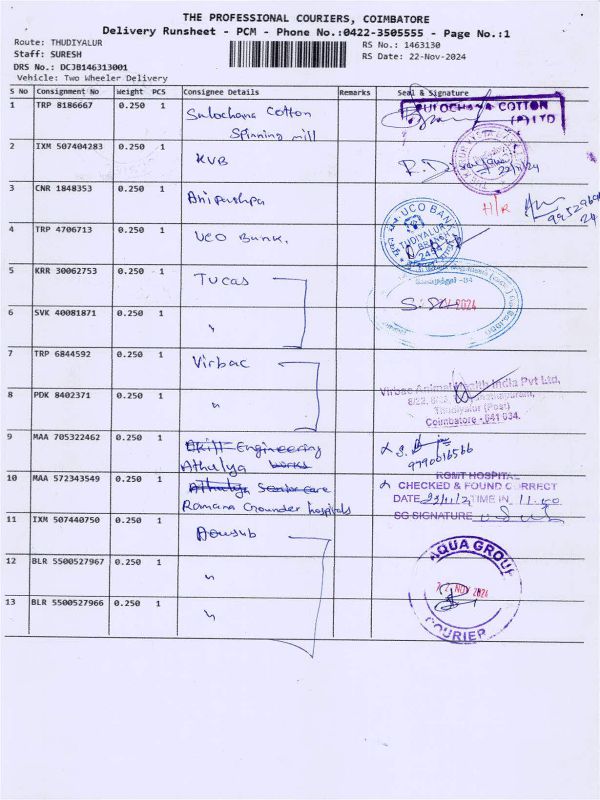 THE PROFESSIONAL COURIERS, COIMBATORE
Delivery Runsheet - PCM - Phone No.:0422-3505555 - Page No.:1
Route: THUDIYALUR
Staff: SURESH
DRS No.: DCJB146313001
Vehicle: Two Wheeler Delivery
RS No.: 1463130
RS Date: 22-Nov-2024
S No Consignment No Weight PCS Consignee Details Remarks Seal & Signature
1 TRP 8186667 0.250 1 Sulochana Cotton
Spinning mill
SULOCHANA COTTON
(P) LTD
2 IXM 507404283 0.250 1 KVB
22/11/24
3 CNR 1848353 0.250 1
H/R
4 TRP 4706713 0.250 1 UCO Bank.
UCO BANK
THUDIYALUR
BRANCH
5 KRR 30062753 0.250 1 Tucas
2024
6 SVK 40081871 0.250 1 "
7 TRP 6844592 0.250 1 Virbac
8 PDK 8402371 0.250 1 "
Virbac Animal Health India Pvt Ltd,
Thudiyalur (Post)
Coimbatore - 641 034.
9 MAA 705322462 0.250 1 Engineering
Athulya works
9790016566
10 MAA 572343549 0.250 1 Athulya Senior care
Ramana Gounder hospitals
HOSPITAL
CHECKED & FOUND CORRECT
DATE TIME IN 11.00
SG SIGNATURE
11 IXM 507440750 0.250 1 Aquasub
12 BLR 5500527967 0.250 1 "
13 BLR 5500527966 0.250 1 "
AQUA GROUP
22 NOV 2024
COURIER